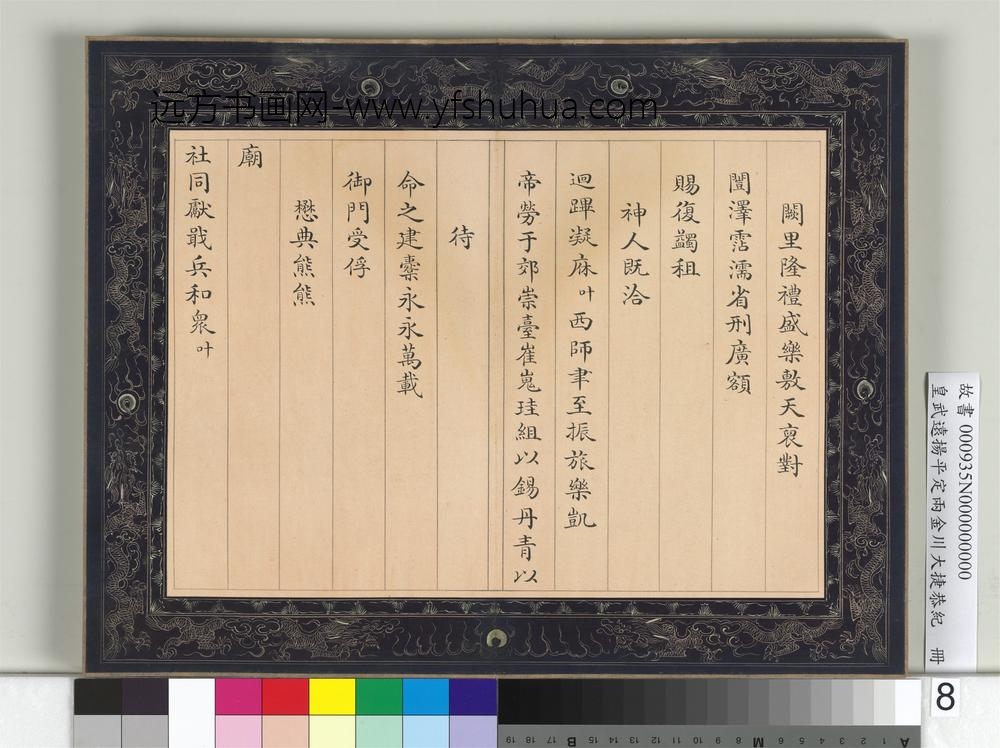 远方书画网-www.yfshuhua.com
闕里隆禮盛樂敷天裒對
闓澤霑濡省刑廣額
賜復蠲租
神人既洽
迴蹕凝庥叶西師聿至振旅樂凱
帝勞于郊崇臺崔嵬珪組以錫丹青以
待
命之建櫜永永萬載
御門受俘
懋典熊熊
廟
社同獻戢兵和衆叶
故書 000935N000000000
皇武遠揚平定兩金川大捷恭紀 冊
8
19 18 17 16 15 14 13 12 11 10 9 8 7 6 5 4 3 2 1
B M A